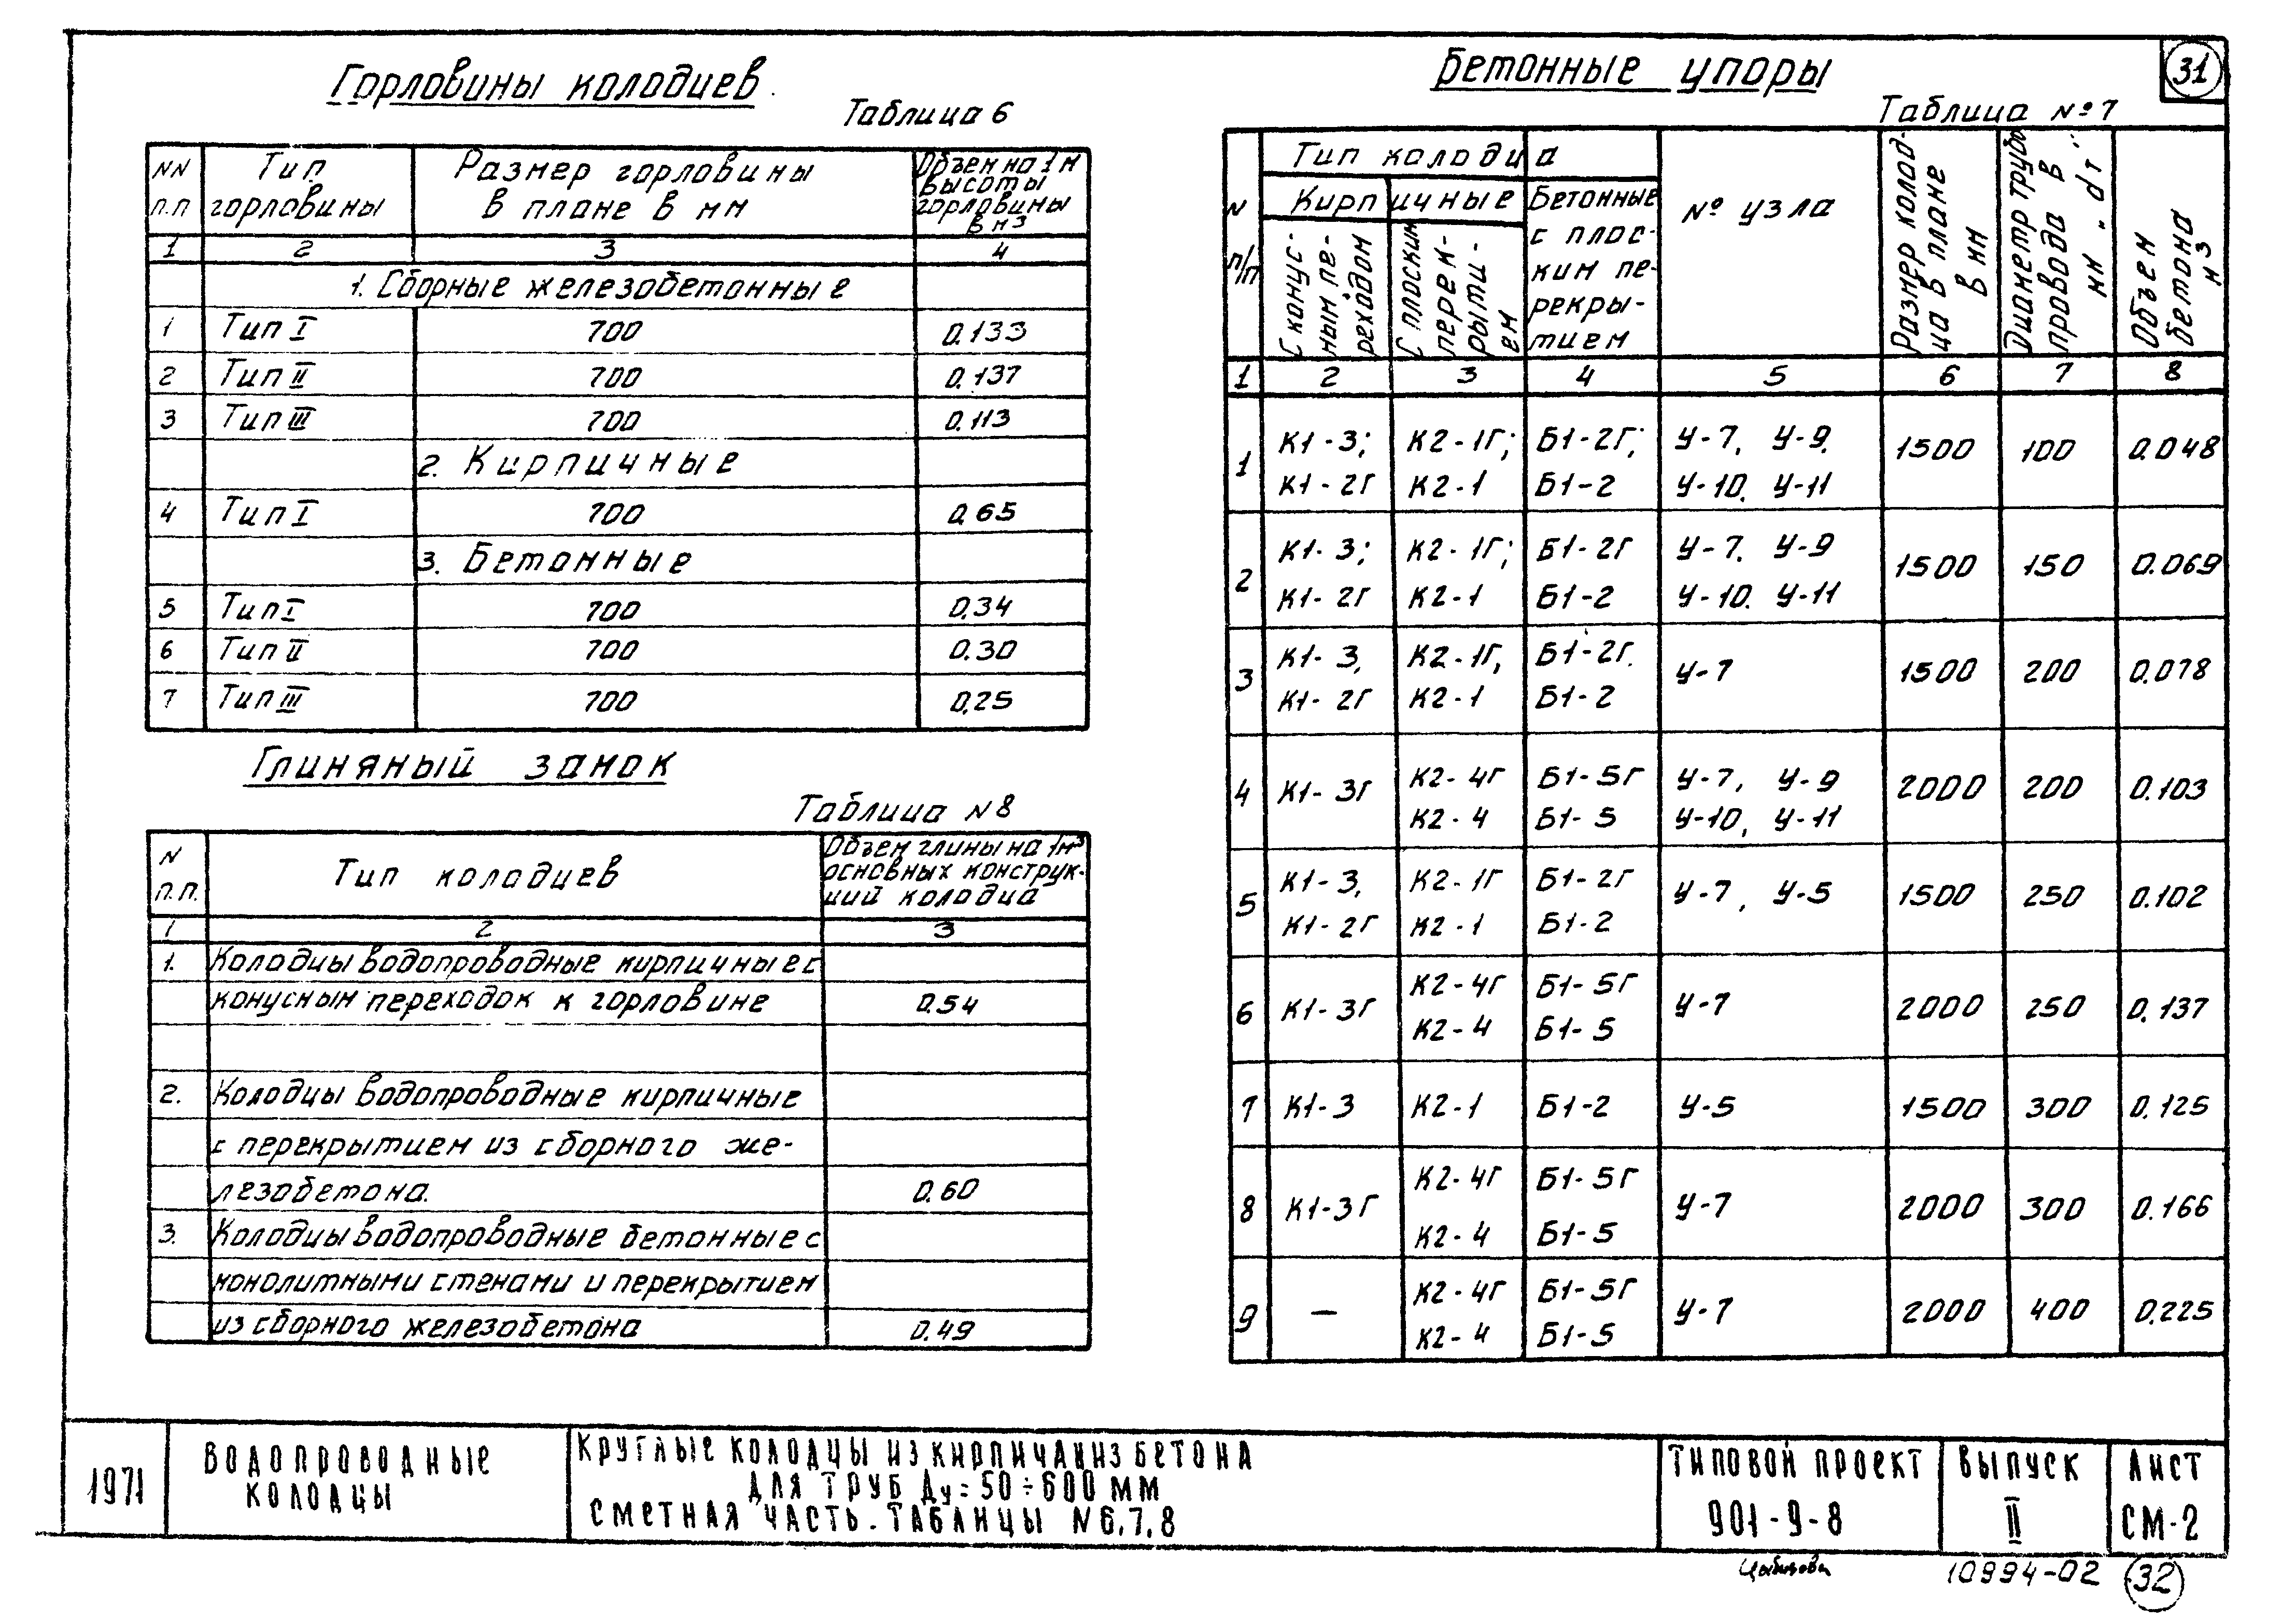 31
Горловины колодцев
Таблица 6
NN п.п | Тип горловины | Размер горловины в плане в мм | Объем на 1м высоты горловины в м3
1 | 2 | 3 | 4
1. Сборные железобетонные
1 | Тип I | 700 | 0.133
2 | Тип II | 700 | 0.137
3 | Тип III | 700 | 0.113
2. Кирпичные
4 | Тип I | 700 | 0.65
3. Бетонные
5 | Тип I | 700 | 0.34
6 | Тип II | 700 | 0.30
7 | Тип III | 700 | 0.25
Глиняный замок
Таблица N8
N п.п. | Тип колодцев | Объем глины на 1м3 основных конструкций колодца
1 | 2 | 3
1. Колодцы водопроводные кирпичные с
конусным переходок к горловине | 0.54
2. Колодцы водопроводные кирпичные
с перекрытием из сборного же-
лезобетона. | 0.60
3. Колодцы водопроводные бетонные с
монолитными стенами и перекрытием
из сборного железобетона | 0.49
Бетонные упоры
Таблица №7
N п/п | Тип колодца | № узла | Размер колодца в плане в мм | Диаметр трубопровода в мм "dт" | Объем бетона м3
Кирпичные | Бетонные с плоским перекрытием
С конусным переходом | С плоским перекрытием
1 | 2 | 3 | 4 | 5 | 6 | 7 | 8
1 | К1-3; К1-2Г | К2-1Г; К2-1 | Б1-2Г; Б1-2 | У-7, У-9, У-10, У-11 | 1500 | 100 | 0.048
2 | К1-3; К1-2Г | К2-1Г; К2-1 | Б1-2Г Б1-2 | У-7. У-9 У-10. У-11 | 1500 | 150 | 0.069
3 | К1-3, К1-2Г | К2-1Г, К2-1 | Б1-2Г. Б1-2 | У-7 | 1500 | 200 | 0.078
4 | К1-3Г | К2-4Г К2-4 | Б1-5Г Б1-5 | У-7, У-9 У-10, У-11 | 2000 | 200 | 0.103
5 | К1-3, К1-2Г | К2-1Г К2-1 | Б1-2Г Б1-2 | У-7, У-5 | 1500 | 250 | 0.102
6 | К1-3Г | К2-4Г К2-4 | Б1-5Г Б1-5 | У-7 | 2000 | 250 | 0.137
7 | К1-3 | К2-1 | Б1-2 | У-5 | 1500 | 300 | 0.125
8 | К1-3Г | К2-4Г К2-4 | Б1-5Г Б1-5 | У-7 | 2000 | 300 | 0.166
9 | — | К2-4Г К2-4 | Б1-5Г Б1-5 | У-7 | 2000 | 400 | 0.225
1971
Водопроводные
колодцы
Круглые колодцы из кирпича и из бетона
для труб Ду=50÷600 мм
Сметная часть. Таблицы N6,7,8
Типовой проект
901-9-8
Выпуск
II
Лист
СМ-2
10994-02
32